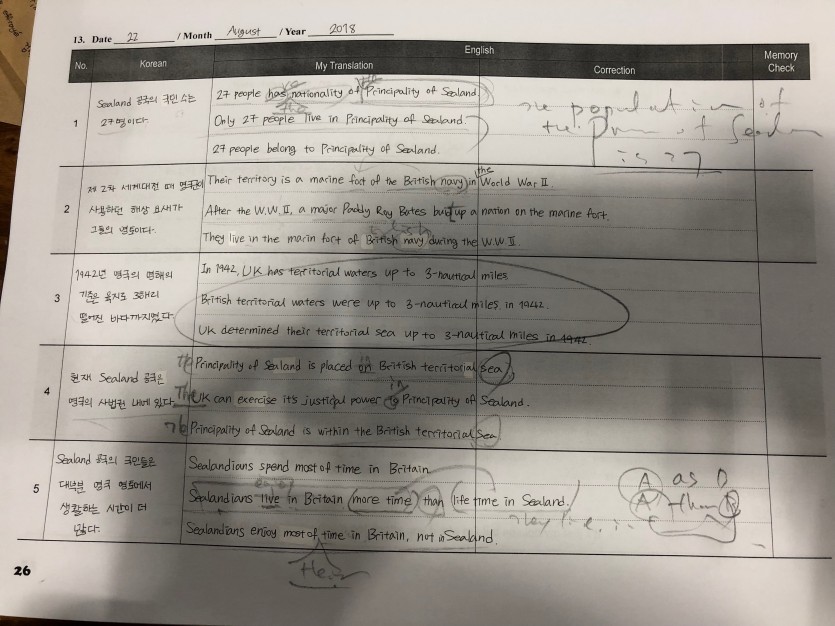 13. Date 22 / Month August / Year 2018
English
No. Korean My Translation Correction Memory Check
1
Sealand 공국의 국민 수는
27명이다.
27 people has nationality of Principality of Sealand
have
the
Only 27 people live in Principality of Sealand.
27 people belong to Principality of Sealand.
The population of
the Prin of Sealan
is 27
2
제 2차 세계대전 때 영국이
사용하던 해상 요새가
그들의 영토이다.
the
Their territory is a marine fort of the British navy in World War II.
After the W.W.II, a major Paddy Roy Bates built up a nation on the marine fort.
They live in the marin fort of British navy during the W.W.II.
3
1942년 영국의 영해의
기준은 육지로 3해리
떨어진 바다까지였다.
In 1942, UK has territorial waters up to 3-nautical miles
British territorial waters were up to 3-nautical miles in 1942.
UK determined their territorial sea up to 3-nautical miles in 1942.
4
현재 Sealand 공국은
영국의 사법권 내에 있다.
The Principality of Sealand is placed on British territorial sea.
in
The UK can exercise its justicial power to Principality of Sealand.
The Principality of Sealand is within the British territorial sea
5
Sealand 공국의 국민들은
대부분 영국 영토에서
생활하는 시간이 더
많다.
Sealandians spend most of time in Britain.
Sealandians live in Britain more time than life time in Sealand.
they live in
Sealandians enjoy most of time in Britain, not in Sealand.
their
A as B
A than B
26